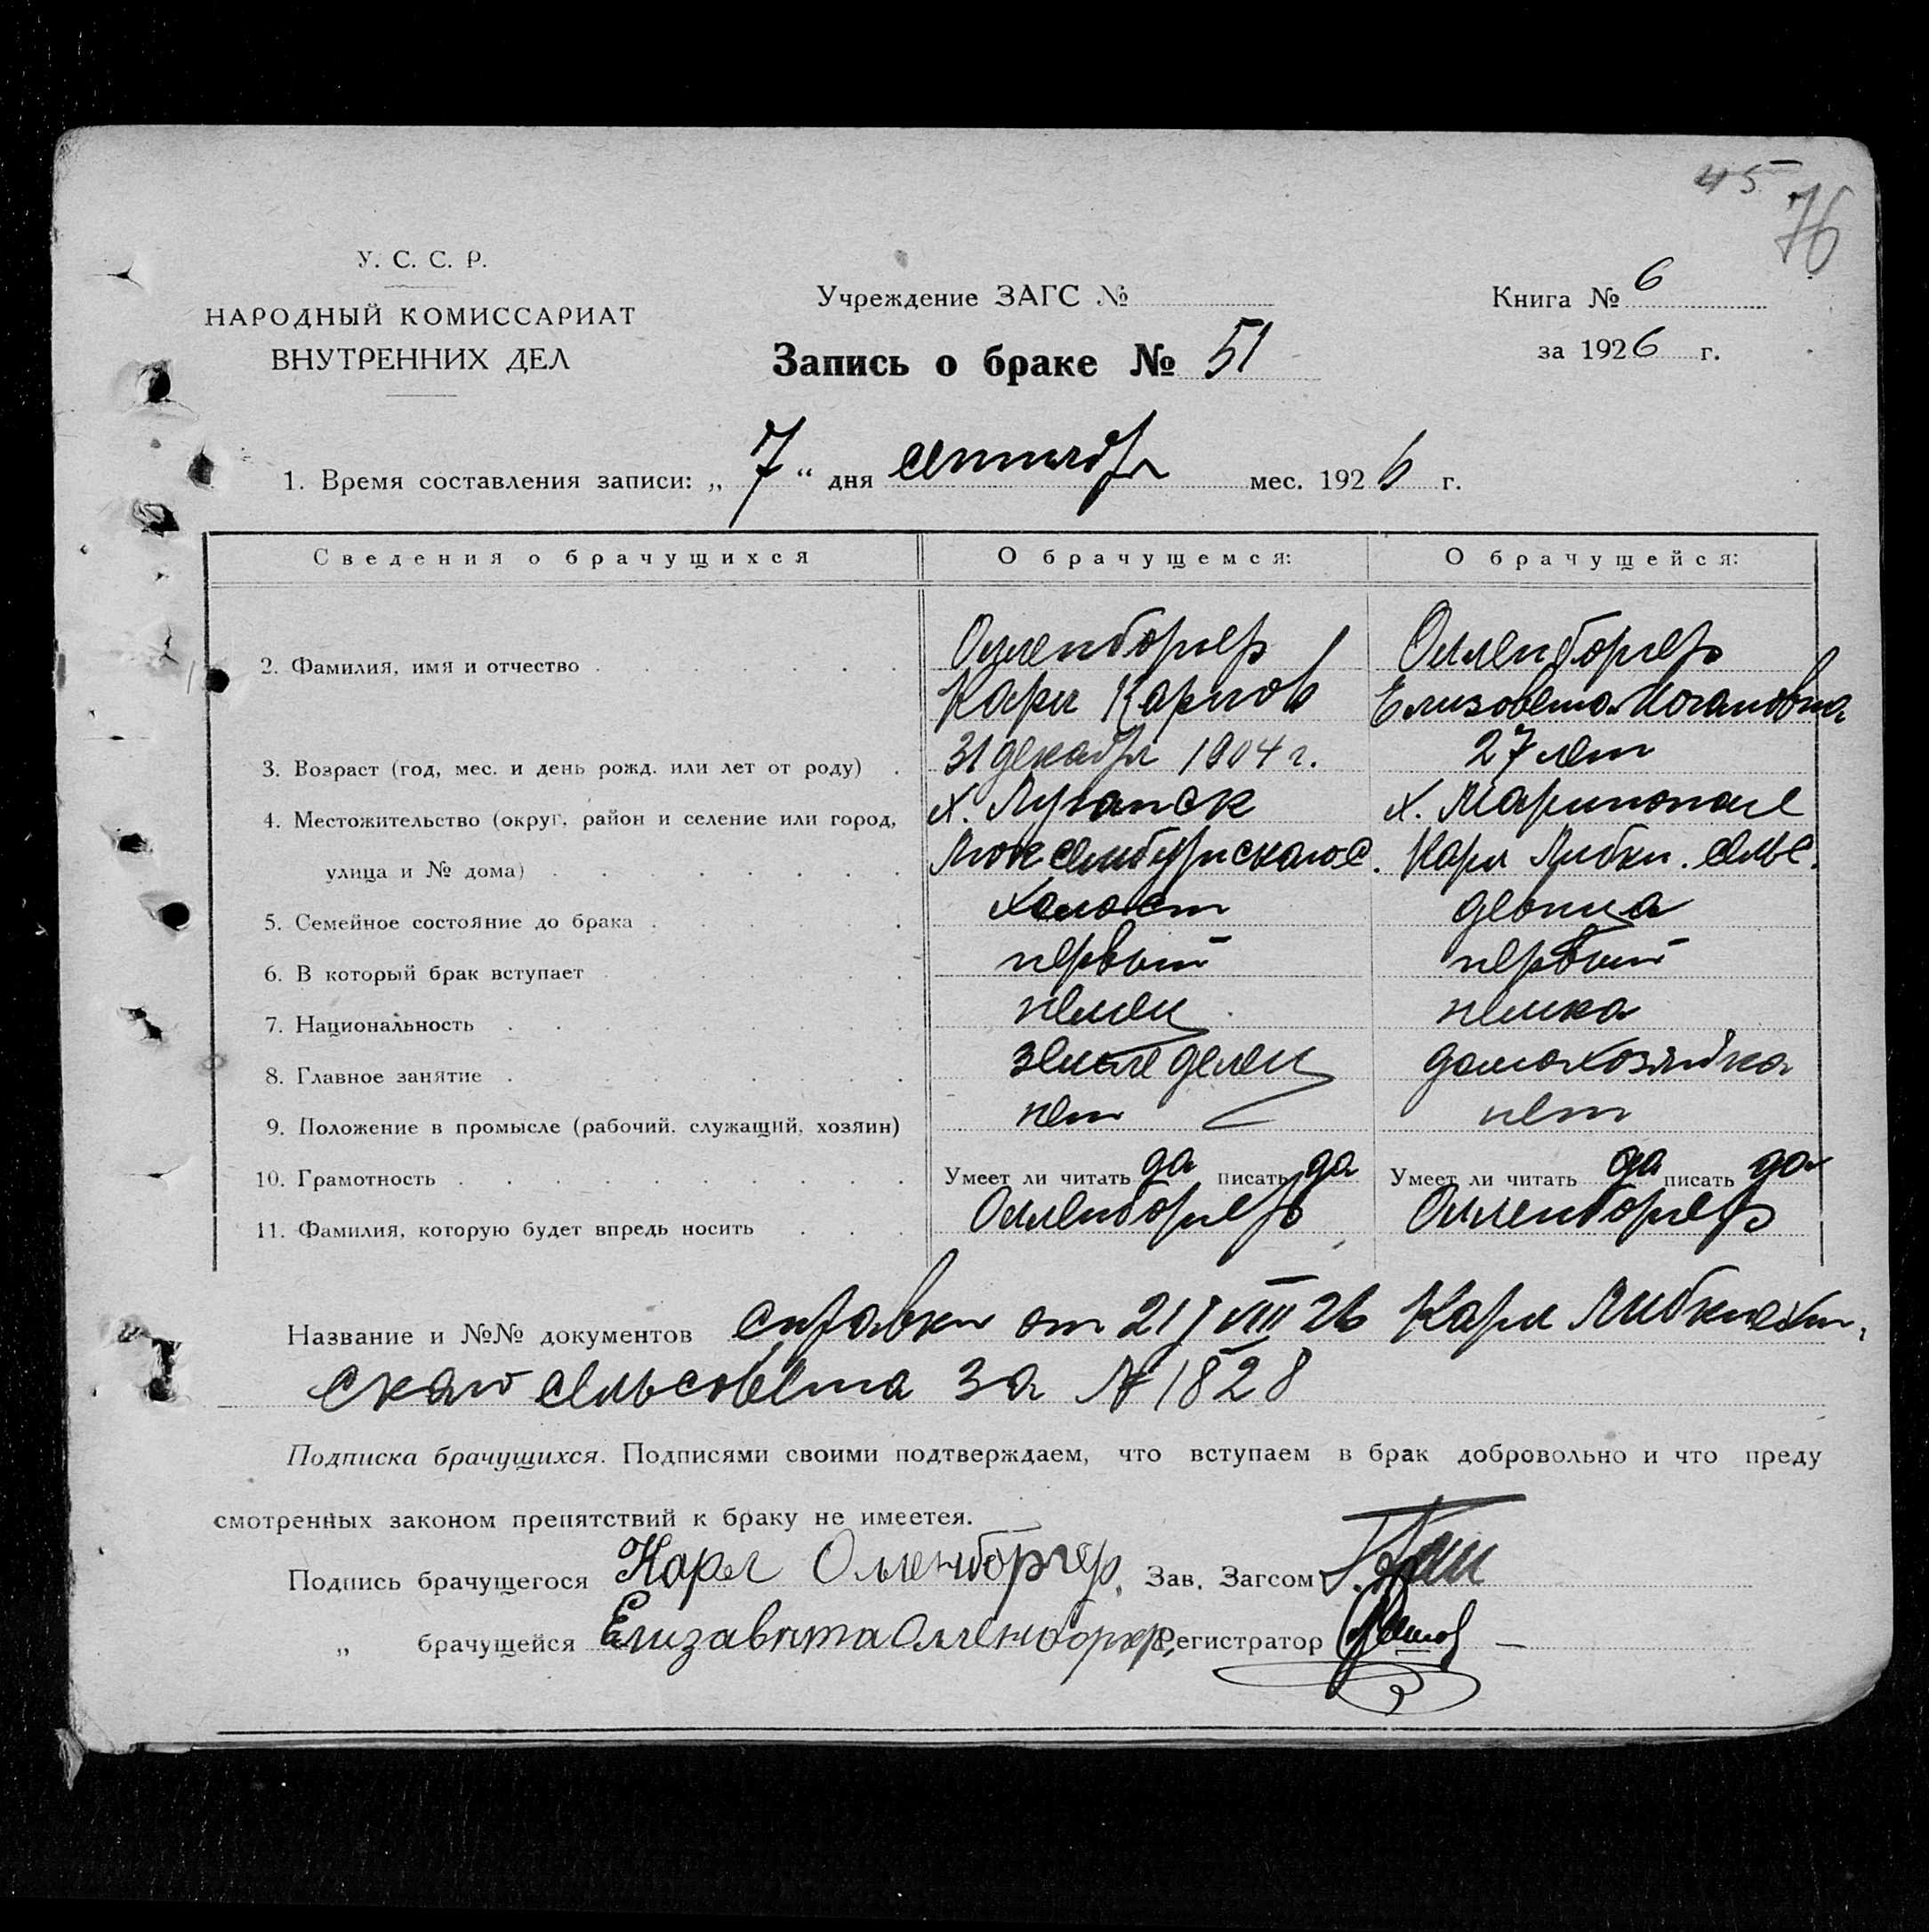 45
76
У. С. С. Р.
НАРОДНЫЙ КОМИССАРИАТ
ВНУТРЕННИХ ДЕЛ
Учреждение ЗАГС №
Запись о браке № 51
Книга № 6
за 1926 г.
1. Время составления записи: „ 7 “ дня сентября мес. 1926 г.
Сведения о брачущихся О брачущемся: О брачущейся:
2. Фамилия, имя и отчество Олленборгер Олленборгер
Карл Карлов Елизовета Иогановна
3. Возраст (год, мес. и день рожд. или лет от роду) 31 декабря 1904 г. 27 лет
4. Местожительство (округ, район и селение или город, х. Луганск х. Маринополе
улица и № дома) Люксембургскаго с. Карл Либкн. сельс.
5. Семейное состояние до брака холост девица
6. В который брак вступает первый первый
7. Национальность немец немка
8. Главное занятие земледелец домохозяйка
9. Положение в промысле (рабочий, служащий, хозяин) нет нет
10. Грамотность Умеет ли читать да писать да Умеет ли читать да писать да
11. Фамилия, которую будет впредь носить Олленборгер Олленборгер
Название и №№ документов справки от 21/VIII 26 Карл Либкнехт-
скаго сельсовета за № 1828
Подписка брачущихся. Подписями своими подтверждаем, что вступаем в брак добровольно и что преду
смотренных законом препятствий к браку не имеется.
Подпись брачущегося Карл Олленборгер. Зав. Загсом
„ брачущейся Елизавета Олленборгер. Регистратор